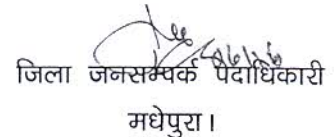 जिला जनसम्पर्क पदाधिकारी
मधेपुरा।